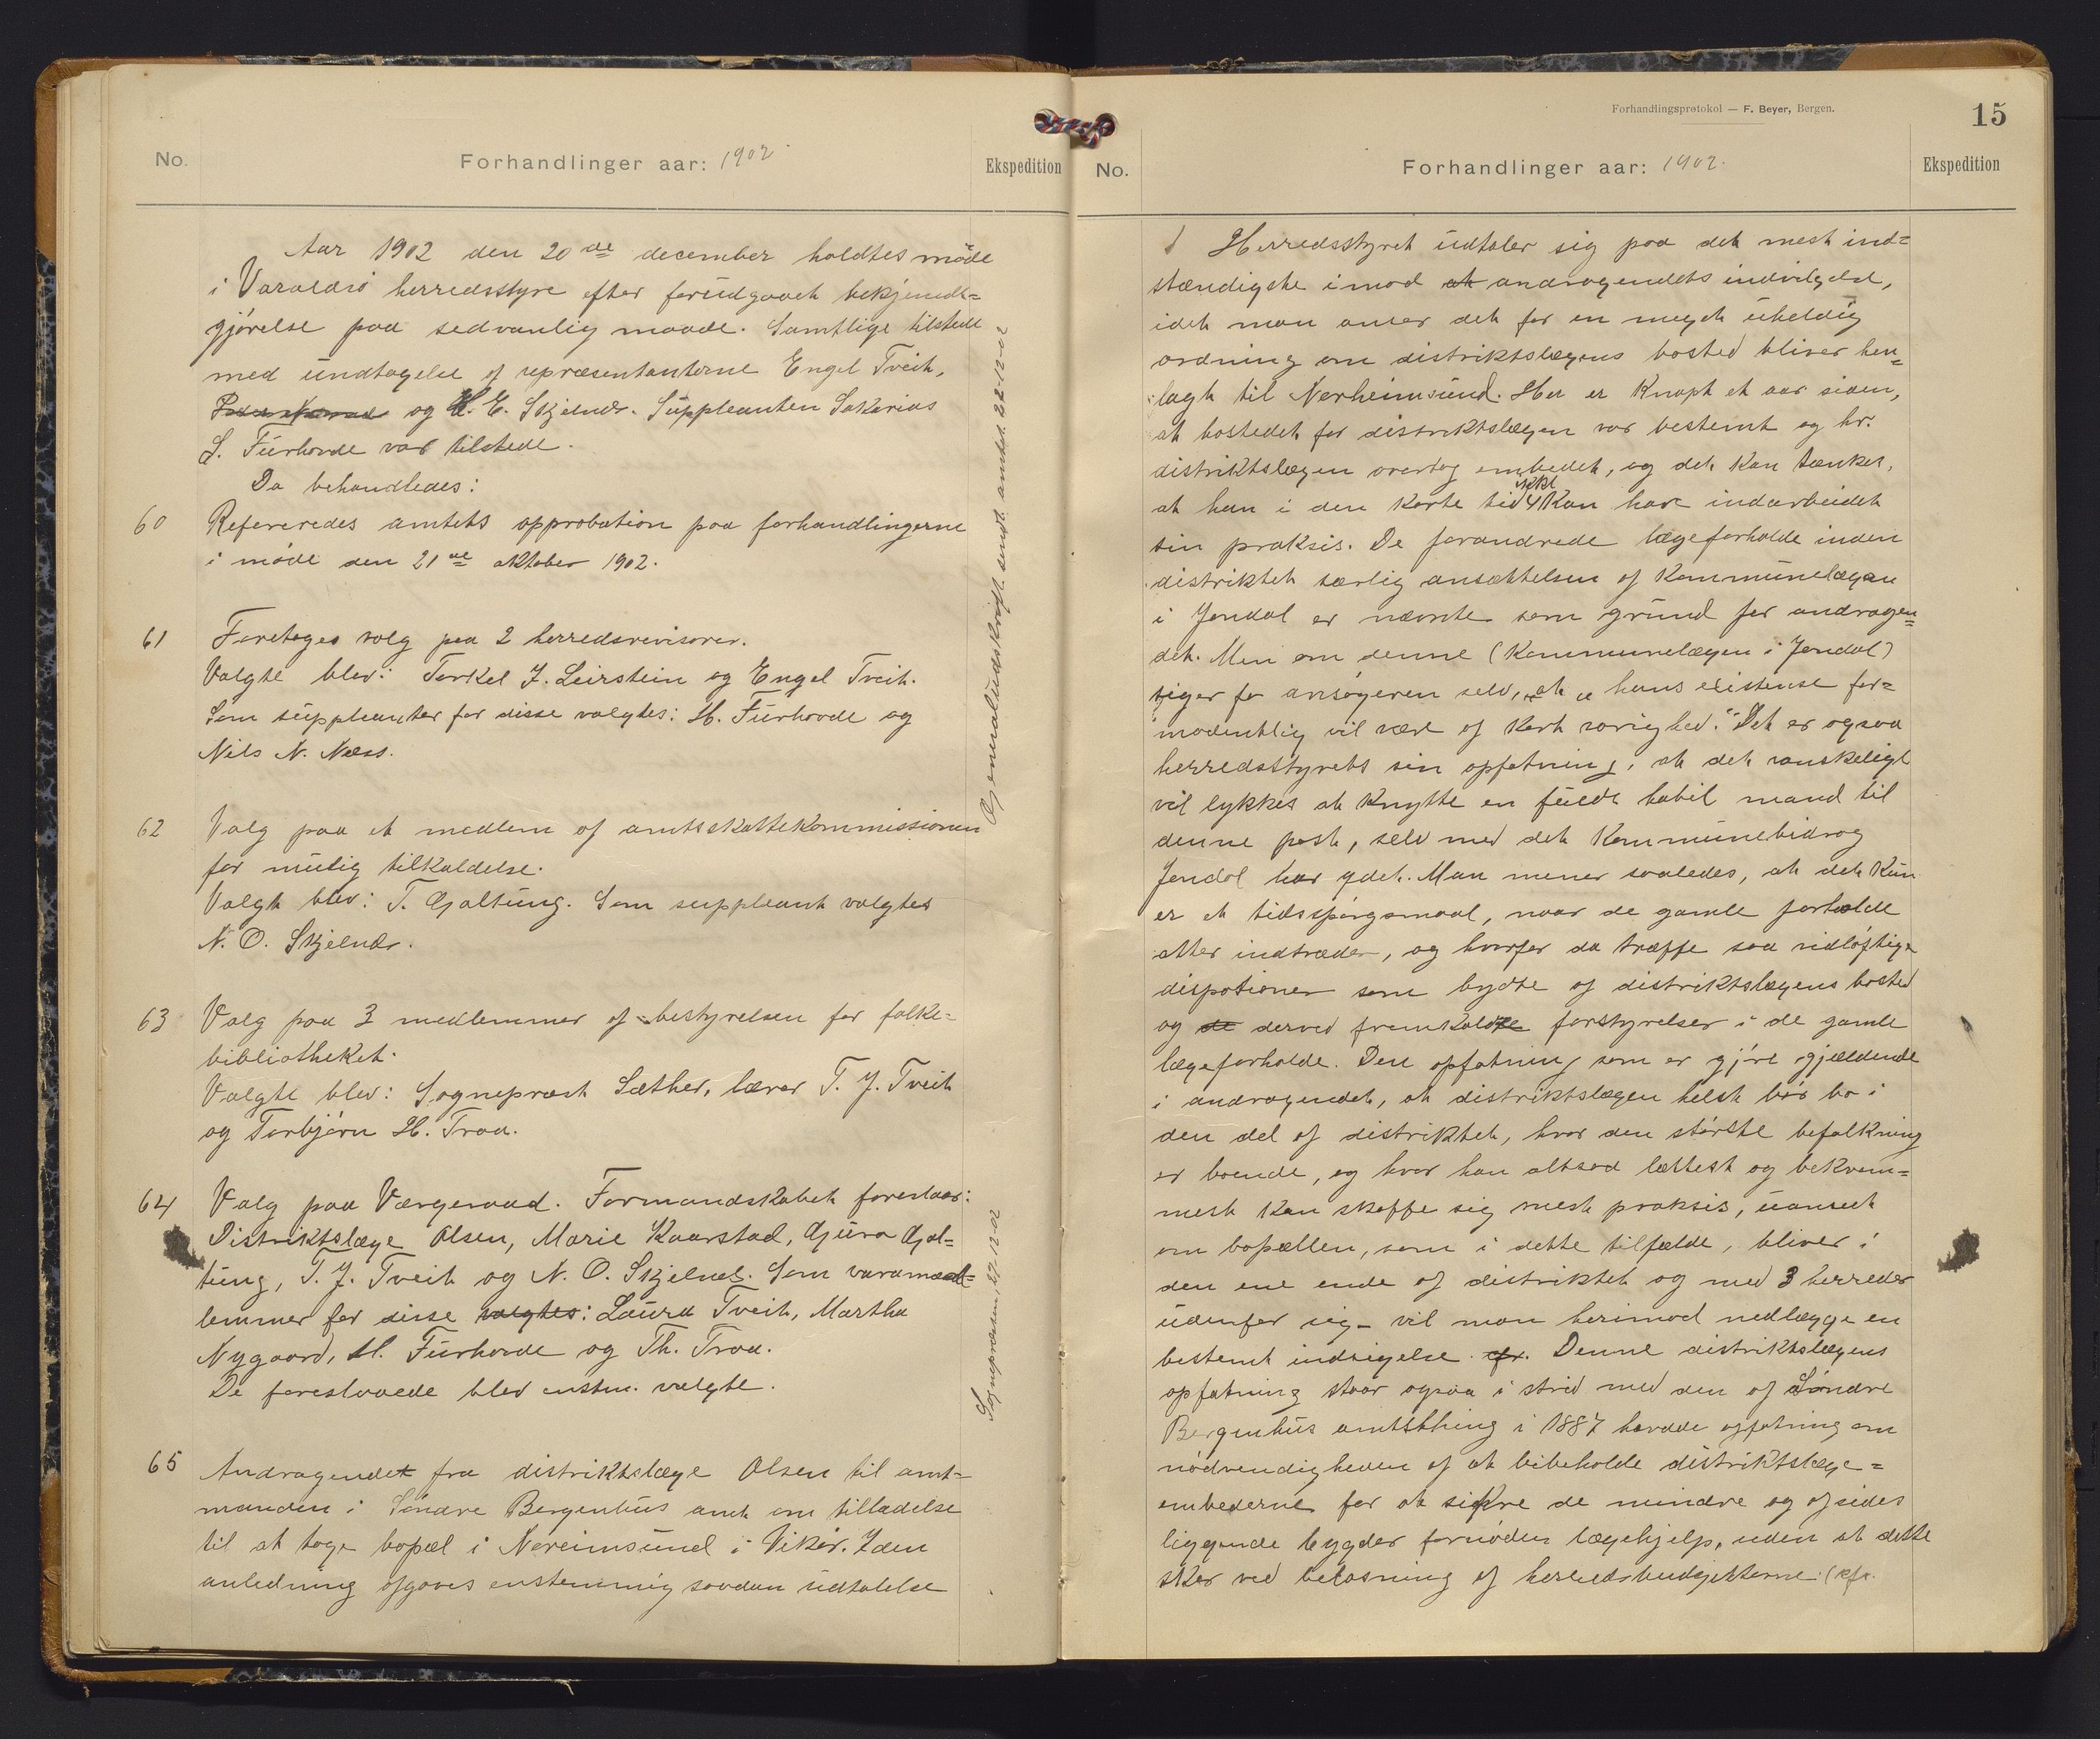 No.
Forhandlinger aar: 1902
Ekspedition
Aar 1902 den 20de december holdtes møde
i Varaldsø herredsstyre efter forudgaaet bekjendt=
gjørelse paa sedvanlig maade. Samtlige tilstede
med undtagelse af repræsentanterne Engel Tveit,
og H. E. Skjelnæs. Suppleanten Sakarias
S. Furhovde var tilstede.
Da behandledes:
60 Refereredes amtets approbation paa forhandlingerne
i møde den 21de oktober 1902.
61 Foretoges valg paa 2 herredsrevisorer.
Valgte blev: Torkel J. Leirstein og Engel Tveit.
Som suppleanter for disse valgtes: H. Furhovde og
Nils N. Næss.
62 Valg paa et medlem af amtsskattekommissionen
for mulig tilkaldelse.
Valgt blev: T. Gjaltung. Som suppleant valgtes
N. O. Skjelnæs.
63 Valg paa 3 medlemmer af bestyrelsen for folke=
bibliotheket.
Valgte blev: Sogneprest Sæther, lærer T. J. Tveit
og Torbjørn H. Traa.
64 Valg paa Værgeraad. Formandskabet foreslaar:
Distriktslæge Olsen, Marie Kaarstad, Gjura Gjal=
tung, T. J. Tveit og N. O. Skjelnæs. Som varamed=
lemmer for disse valgtes: Laura Tveit, Martha
Nygaard, H. Furhovde og Th. Traa.
De foreslaaede blev enstm. valgte.
65 Andragendet fra distriktslæge Olsen til amt=
manden i Søndre Bergenhus amt om tilladelse
til at tage bopæl i Nereimsund i Vikør. I den
anledning afgaves enstemmig saadan udtalelse
Gjenmaludskrift sendt amtet 22-12-02
Sognepræsten 27-12-02
Forhandlingsprotokol — F. Beyer, Bergen.
15
No.
Forhandlinger aar: 1902.
Ekspedition
Herredsstyret udtaler sig paa det mest ind=
stændigste imod at andragendets indvilgelse,
idet man anser det for en meget uheldig
ordning om distriktslægens bosted bliver hen=
lagt til Nerheimsund. Her er knapt et aar siden,
at bostedet for distriktslægen var bestemt og hr.
distriktslægen overtog embedet, og det kan tænkes,
at han i den korte tid ikke kan have indarbeidet
sin praksis. De forandrede lægeforholde inden
distriktet særlig ansættelsen af kommunelægen
i Jondal er nævnte som grund for andragen=
det. Men om denne (kommunelægen i Jondal)
siger jo ansøgeren selv, at „hans existense for=
modentlig vil være af kort varighed." Det er ogsaa
herredsstyrets sin opfatning, at det vanskeligt
vil lykkes at knytte en fuldt habil mand til
denne post, selv med det kommunebidrag
Jondal har ydet. Man mener saaledes, at det kun
er et tidsspørgsmaal, naar de gamle forholde
atter indtræder, og hvorfor da træffe saa vidløftige
dispotioner som bytte af distriktslægens bosted
og de derved fremkaldte forstyrrelser i de gamle
lægeforholde. Den opfatning som er gjort gjældende
i andragendet, at distriktslægen helst bør bo i
den del af distriktet, hvor den største befolkning
er boende, og hvor han altsaa lættest og bekvem=
mest kan skaffe sig mest praksis, uanseet
om bopællen, som i dette tilfælde, bliver i
den ene ende af distriktet og med 3 herreder
udenfor sig – vil man herimod nedlægge en
bestemt indsigelse. Denne distriktslægens
opfatning staar ogsaa i strid med den af Søndre
Bergenhus amtsthing i 1887 hævdede opfatning om
nødvendigheden af at bibeholde distriktslæge=
embederne for at sikre de mindre og afsides
liggende bygder fornøden lægehjelp, uden at dette
sker ved belasning af herredsbudgjetterne (cfr.